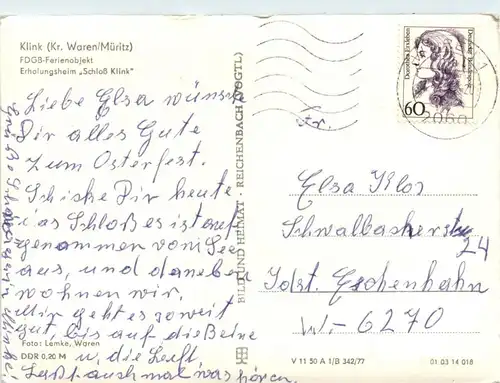 Klink (Kr. Waren/Müritz)
FDGB-Ferienobjekt
Erholungsheim „Schloß Klink"
Liebe Elsa wünsche
Dir alles Gute
zum Osterfest.
Schicke Dir heute
das Schloß es ist auf-
genommen vom See
aus, und daneben
wohnen wir.
Mir geht es soweit
gut, bis auf die Beine
u. die Luft
Laßt auch mal was hören.
Foto: Lemke, Waren
DDR 0,20 M
BILD UND HEIMAT · REICHENBACH (VOGTL)
Deutsche Bundespost
60
2060
Elsa Klos
Schwalbacherstr
24
Idst. Eschenhahn
W.-6270
V 11 50 A 1/B 342/77
01 03 14 018